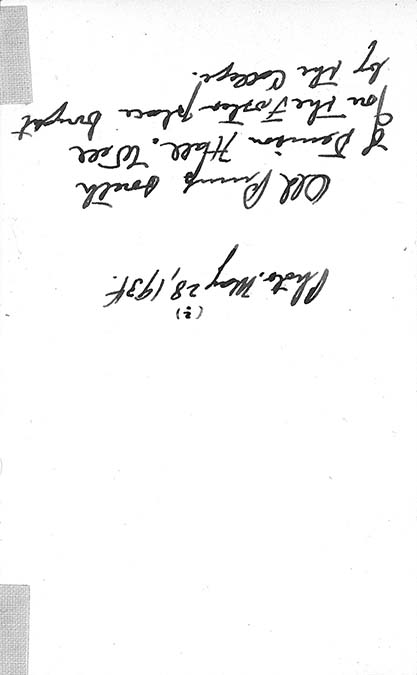 (?)
Photo. May 28, 1934.
Old Pump south
of Denison Hall. Well
on the Foster place bought
by the College.